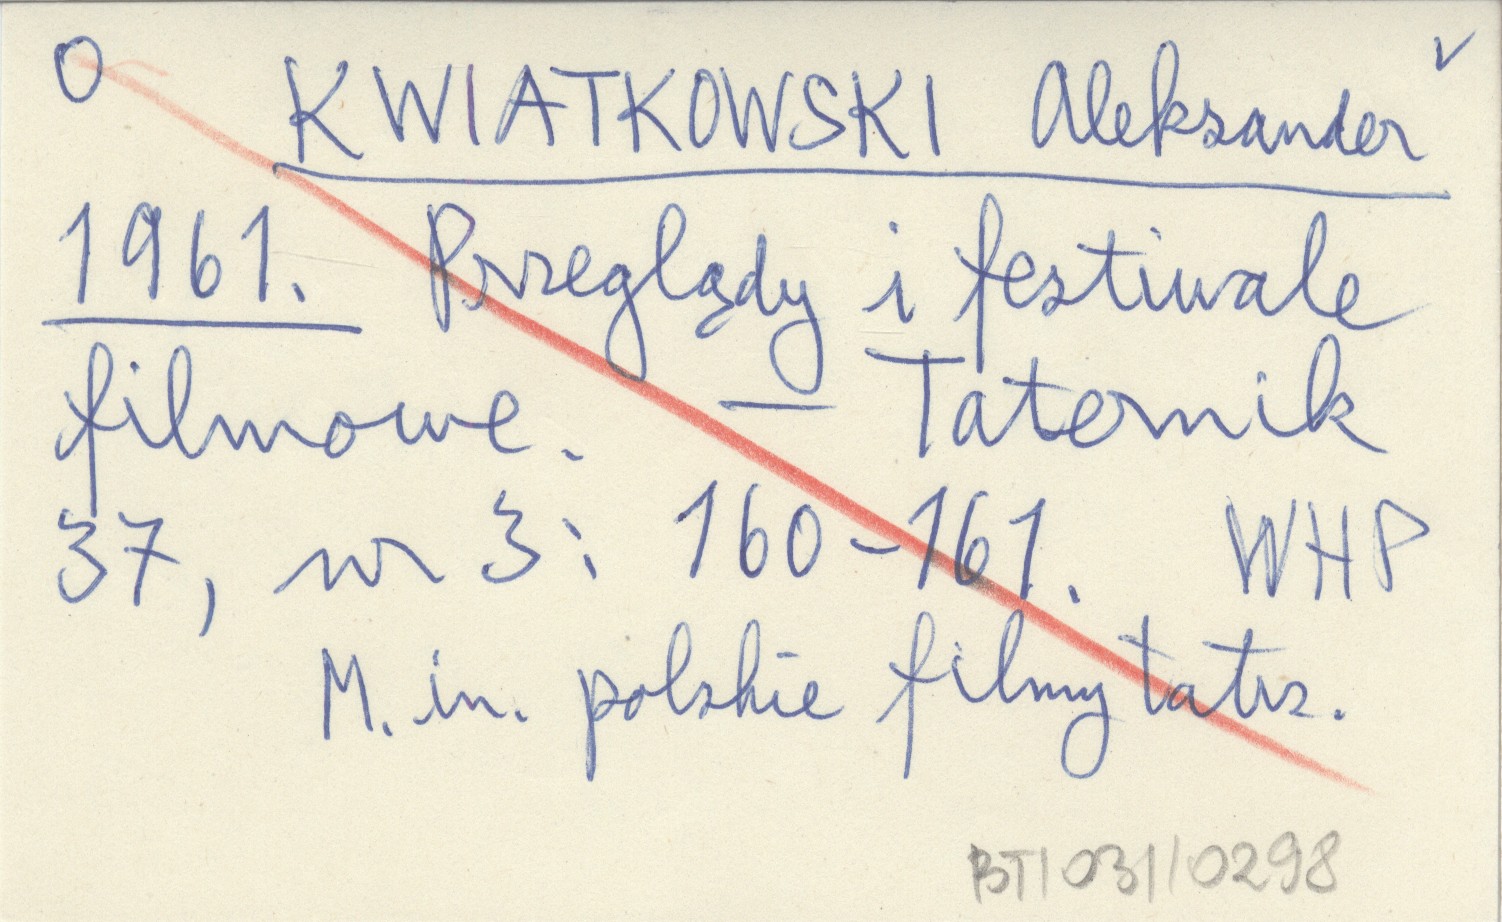 O KWIATKOWSKI Aleksander v
1961. Przeglądy i festiwale
filmowe. — Taternik
37, nr 3: 160-161. WHP
M.in. polskie filmy tatrz.
BT/031/0298